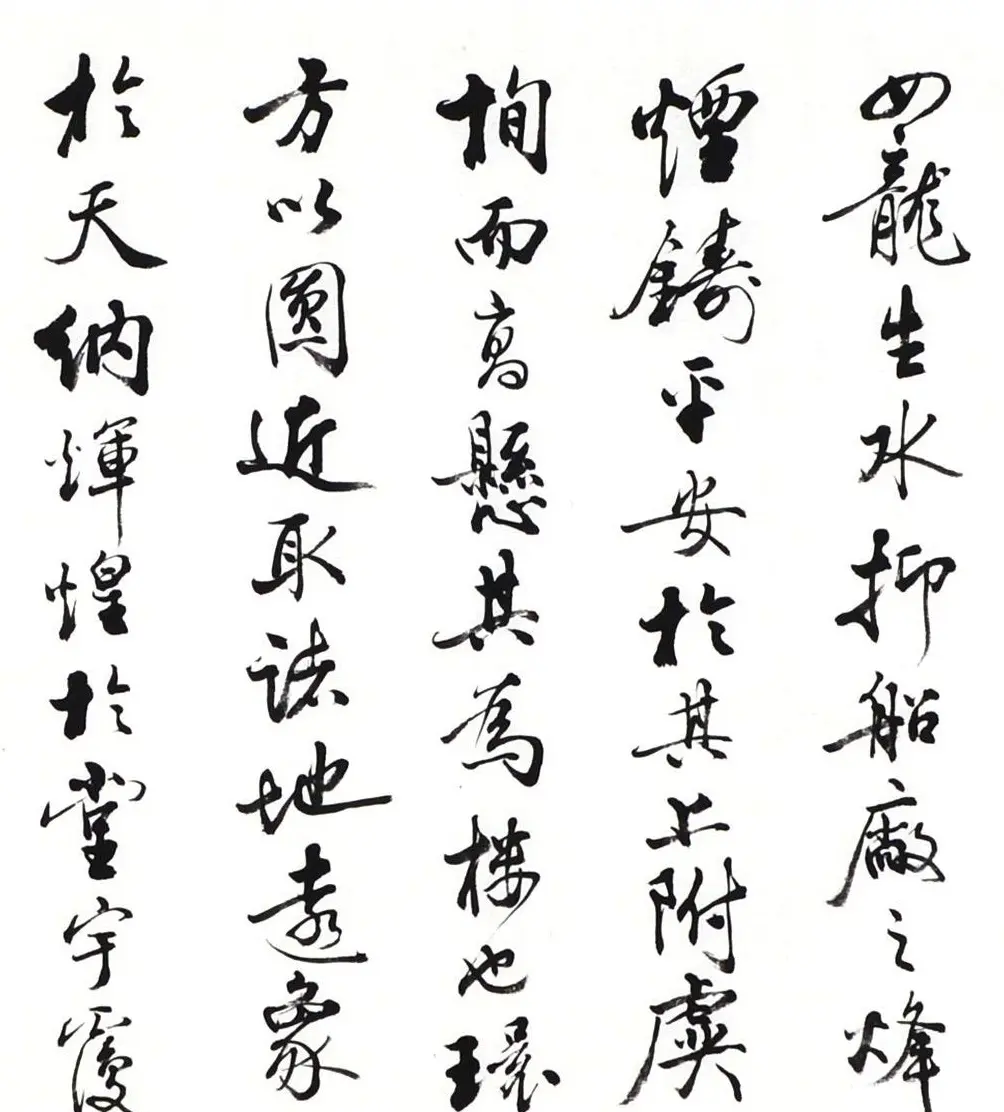 如龍生水抑船廠之烽
煙鑄平安於其上附虡
栒而高懸其為樓也環
方以圓近取諸地遠象
於天納輝煌於堂宇覆